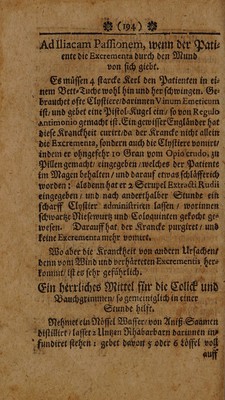 (194)
Ad Iliacam Passionem, wenn der Pati-
ente die Excrementa durch den Mund
von sich giebt.
Es müssen 4 starcke Kerl den Patienten in ei-
nem Bett-Tuche wohl hin und her schwingen. Ge-
brauchet offte Clystiere/ darinnen Vinum Emeticum
ist/ und gebet eine Pistol-Kugel ein/ so von Regulo
Antimonio gemacht ist. Ein gewisser Engländer hat
diese Kranckheit curirt/ da der Krancke nicht allein
die Excrementa, sondern auch die Clystiere vomirt/
indem er ohngefehr 10 Gran vom Opio crudo, zu
Pillen gemacht/ eingegeben/ welches der Patiente
im Magen behalten/ und darauf etwas schläfferich
worden: alsdenn hat er 2 Scrupel Extracti Rudii
eingegeben/ und nach anderthalber Stunde ein
scharff Clystier administriren lassen/ worinnen
schwartze Niesewurtz und Coloquinten gekocht ge-
wesen. Darauff hat der Krancke purgiret/ und
keine Excrementa mehr vomirt.
Wo aber die Kranckheit von andern Ursachen/
denn vom Wind und verhärteten Excrementis her-
kommt/ ist es sehr gefährlich.
Ein herrliches Mittel für die Colick und
Bauchgrimmen/ so gemeiniglich in einer
Stunde hilft.
Nehmet ein Nössel Wasser/ von Aniß-Saamen
distilliret/ lasset 2 Untzen Rhabarbarn darinnen in-
fundiret stehen: gebet davon 5 oder 6 löffel voll
auff